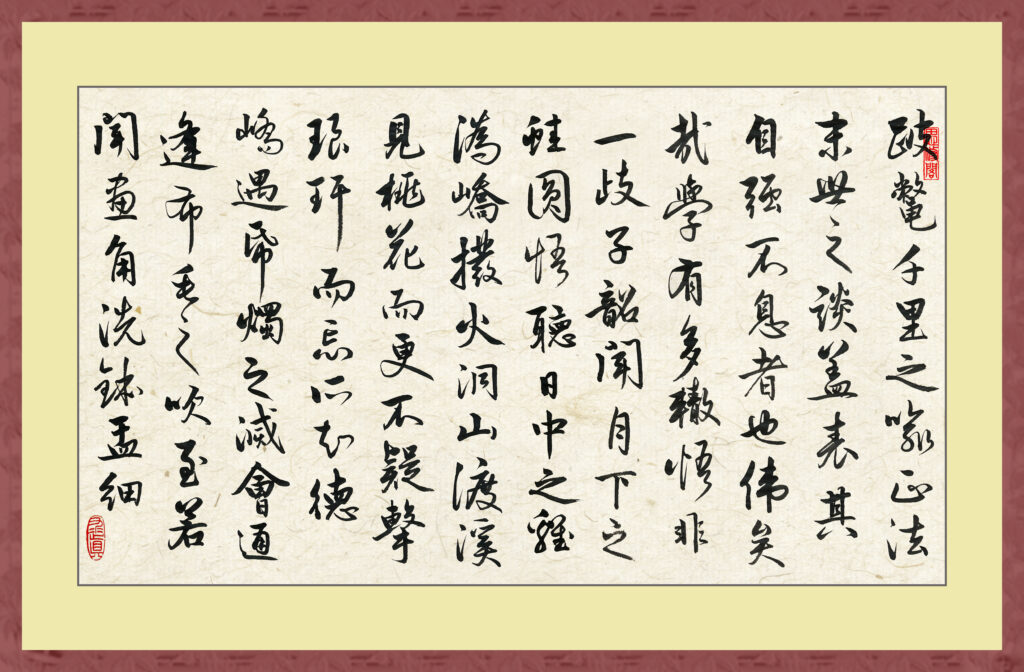 跛鼈千里之喻正法
末世之談蓋表其
自强不息者也偉矣
哉學有多轍悟非
一歧子韶聞月下之
蛙圓悟聽日中之雞
溈嶠撥火洞山渡溪
見桃花而更不疑擊
琅玕而忘所知德
嶠遇帋燭之滅會通
逢布毛之吹至若
聞畫角洗鉢盂細